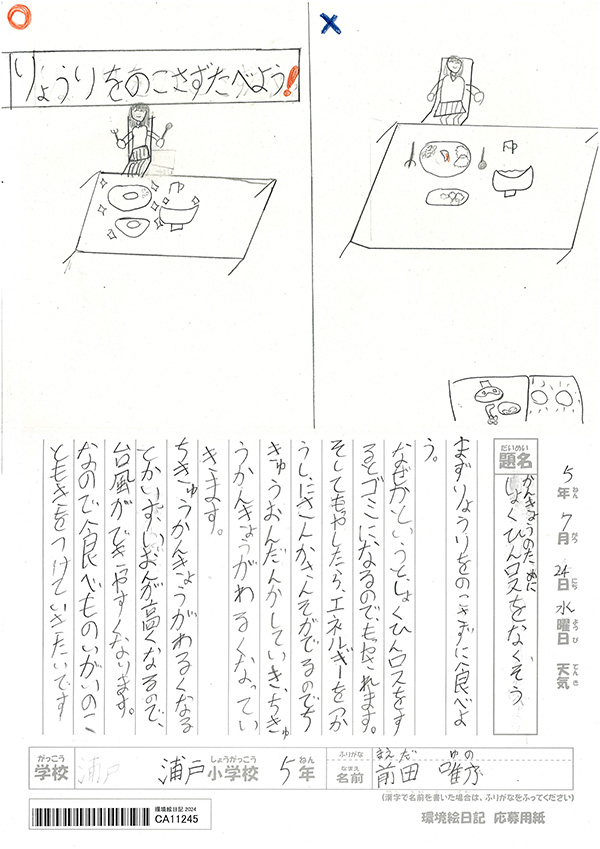 りょうりをのこさずたべよう!
5年7月24日水曜日 天気
ねん がつ にち ようび てんき
だいめい
題名
かんきょうのために
しょくひんロスをなくそう
まずりょうりをのこさずに食べよ
う。
なぜかというと、しょくひんロスをす
るとゴミになるのでもやされます。
そしてもやしたら、エネルギーをつか
うし、にさんかたんそがでるのでち
きゅうおんだんかしていき、ちきゅ
うかんきょうがわるくなってい
きます。
ちきゅうかんきょうがわるくなる
とかいすいおんが高くなるので、
台風ができやすくなります。
なので食べものいがいのこ
ともきをつけていきたいです
がっこう しょうがっこう ねん ふりがな まえだ ゆの
学校 浦戸小学校 5年 なまえ 名前 前田
(漢字で名前を書いた場合は、ふりがなをふってください)
環境絵日記 2024
CA11245
環境絵日記 応募用紙